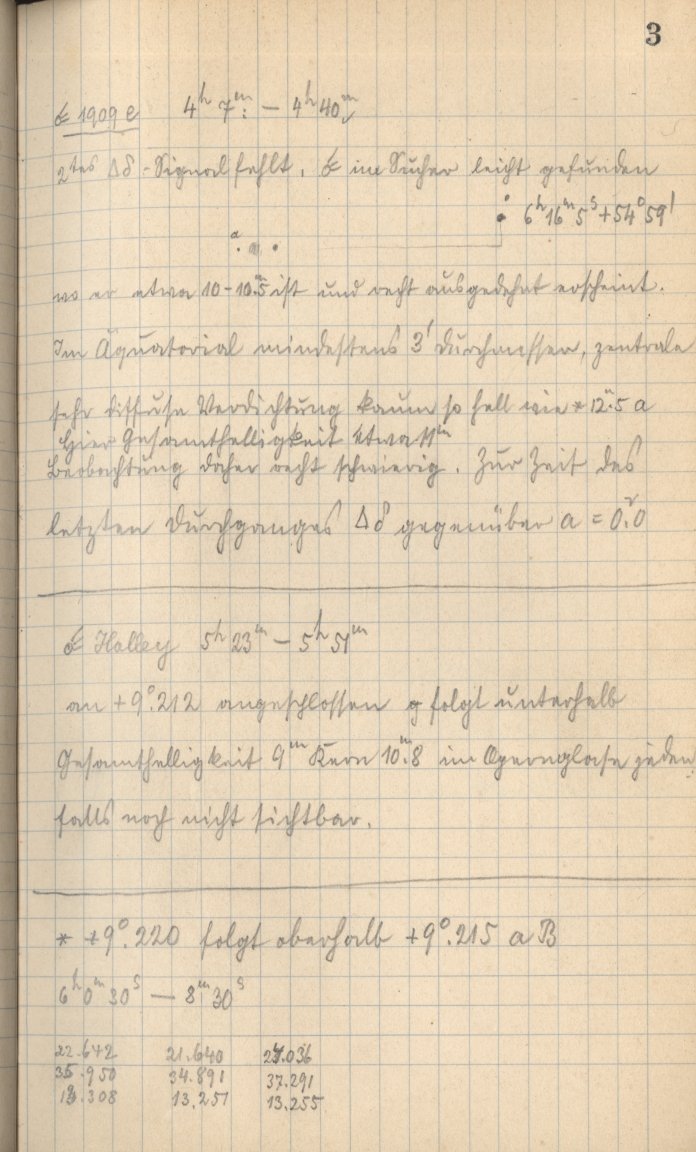 3
☄ 1909 e 4ʰ 7ᵐ: – 4ʰ 40ᵐ
2tes Δδ-Signal fehlt. ☄ im Sucher leicht gefunden
6ʰ 16ᵐ 5ˢ + 54° 59'
a
wo er etwa 10–10ᵐ.5 ist und recht ausgedehnt erscheint.
Im Äquatorial mindestens 3' Durchmesser, zentrale
sehr diffuse Verdichtung kaum so hell wie * 12ᵐ.5 a
Hier Gesamthelligkeit etwa 11ᵐ
Beobachtung daher recht schwierig. Zur Zeit des
letzten Durchganges Δδ gegenüber a = 0ʳ.0
☄ Halley 5ʰ 23ᵐ – 5ʰ 51ᵐ
an +9°.212 angeschlossen folgt unterhalb
Gesamthelligkeit 9ᵐ Kern 10ᵐ.8 im Opernglase jeden
falls noch nicht sichtbar.
* +9°.220 folgt oberhalb +9°.215 a B
6ʰ 0ᵐ 30ˢ – 8ᵐ 30ˢ
22.642 21.640 24.036
35.950 34.891 37.291
13.308 13.251 13.255